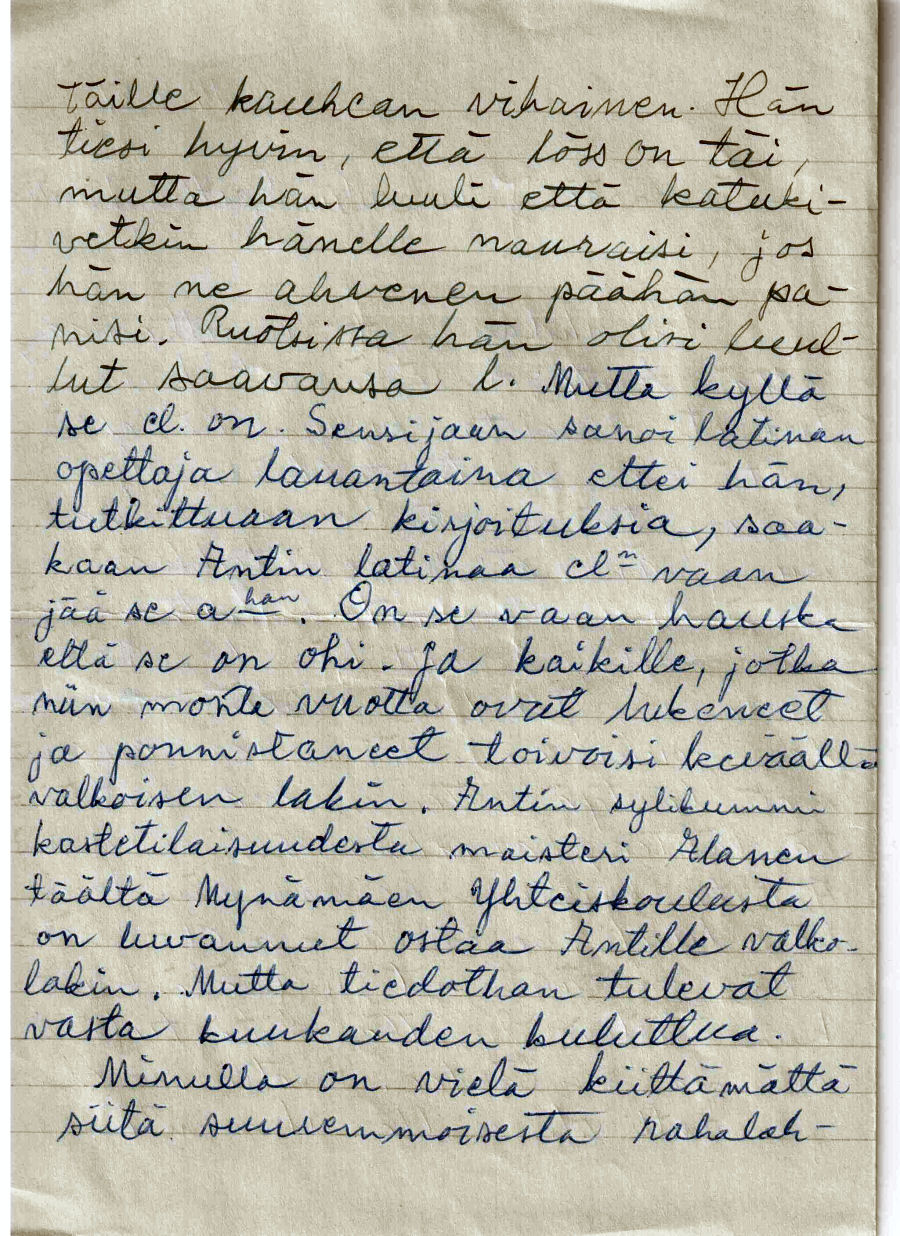 täille kauhean vihainen. Hän
tiesi hyvin, että löss on täi,
mutta hän luuli että katuki-
vetkin hänelle nauraisi, jos
hän ne ahvenen päähän pa-
nisi. Ruotsissa hän olisi luul-
lut saavansa l. Mutta kyllä
se cl. on. Sensijaan sanoi latinan
opettaja lauantaina ettei hän,
tutkittuaan kirjoituksia, saa-
kaan Antin latinaa cl n vaan
jää se a han. On se vaan hauska
että se on ohi. Ja kaikille, jotka
niin monta vuotta ovat lukeneet
ja ponnistaneet toivoisi keväällä
valkoisen lakin. Antin sylikummi
kastetilaisuudesta maisteri Alanen
täältä Mynämäen Yhteiskoulusta
on luvannut ostaa Antille valko-
lakin. Mutta tiedothan tulevat
vasta kuukauden kuluttua.
Minulla on vielä kiittämättä
siitä suuremmoisesta rahalah-